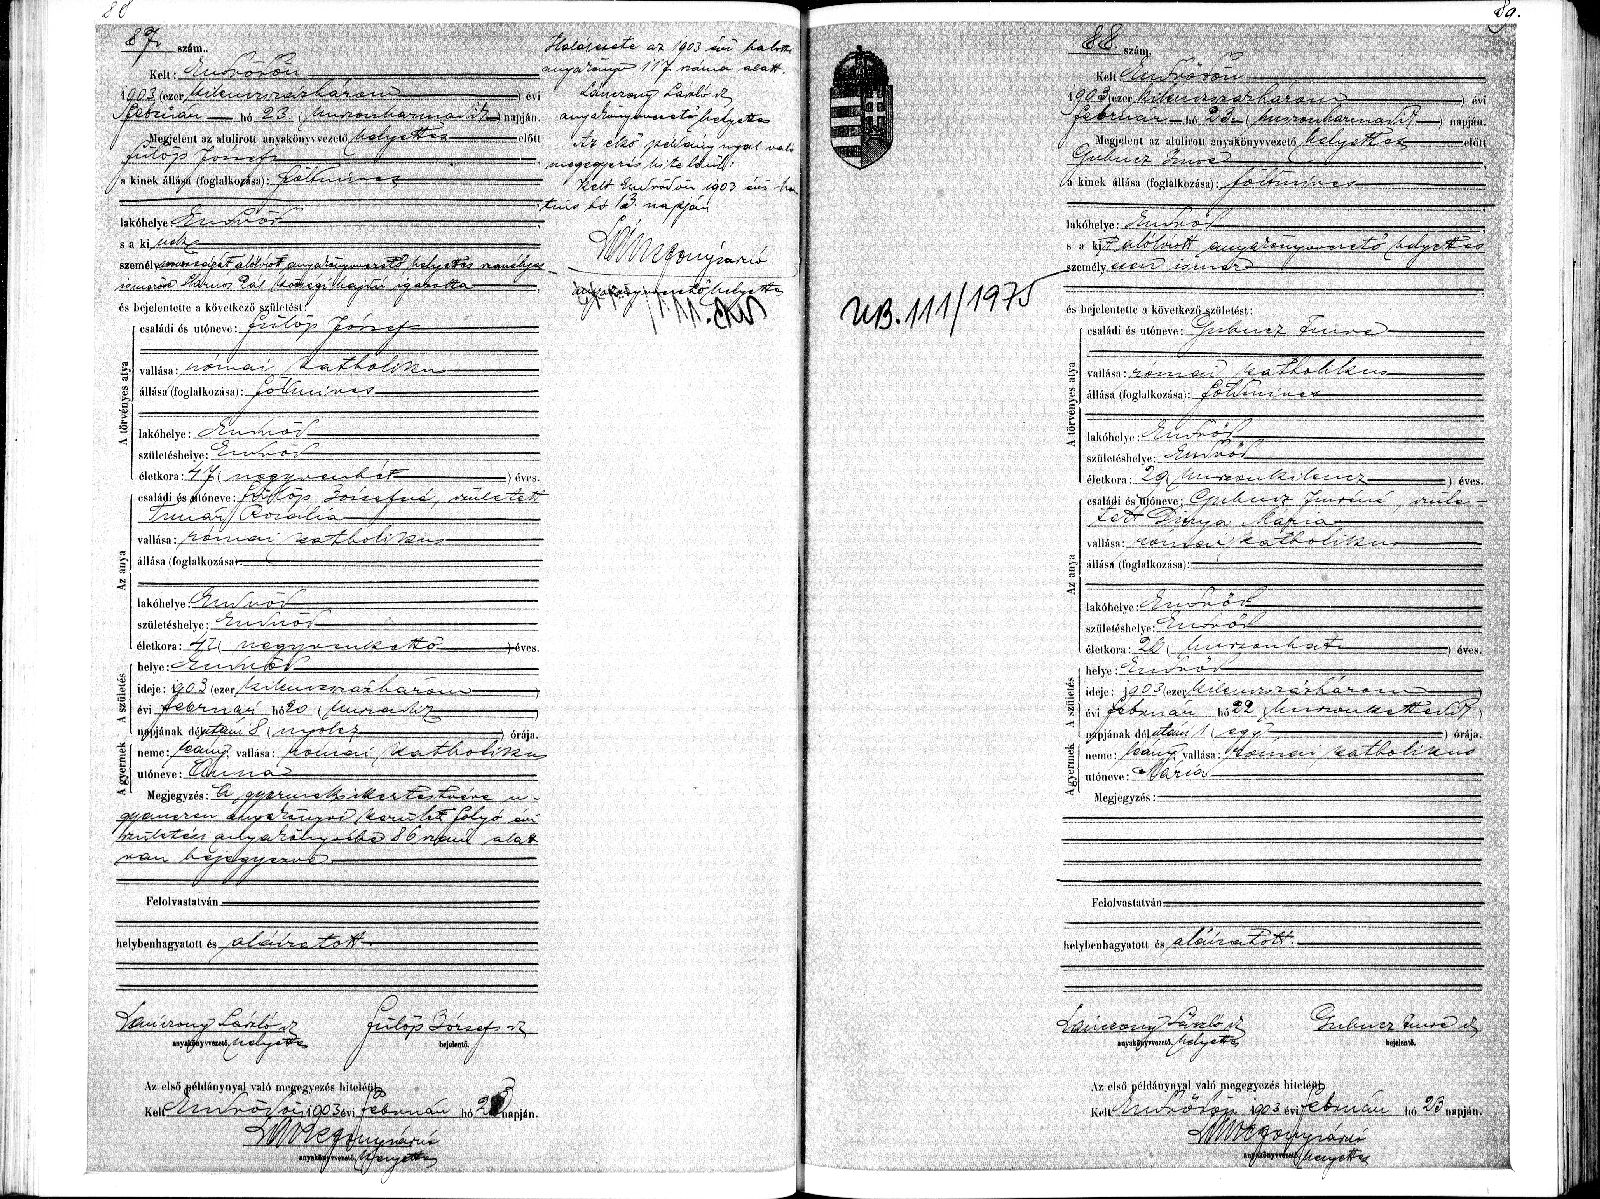 88
87. szám.
Kelt: Endrődön
1903 (ezer kilenczszázhárom) évi
február hó 23 (huszonharmadik) napján.
Megjelent az alulirott anyakönyvvezető helyettes előtt
Fülöp József
a kinek állása (foglalkozása): földmives
lakóhelye: Endrőd
s a ki nek
személyazonosságát alólirott anyakönyvvezető helyettes
és bejelentette a következő születést:
A törvényes atya
családi és utóneve: Fülöp József
vallása: római katholikus
állása (foglalkozása): földmives
lakóhelye: Endrőd
születéshelye: Endrőd
életkora: 47 (negyvenhét) éves.
Az anya
családi és utóneve: Fülöp Józsefné, született
Tímár Rozália
vallása: római katholikus
állása (foglalkozása)
lakóhelye: Endrőd
születéshelye: Endrőd
életkora: 42 (negyvenkettő) éves.
A születés
helye: Endrőd
ideje: 1903 (ezer kilenczszázhárom)
évi február hó 20 (huszadik)
napjának délután 8 (nyolcz) órája.
A gyermek
neme: leány, vallása: római katholikus
utóneve: Anna
Megjegyzés: A gyermek ikertestvére u-
gyanezen anyakönyvi kerület folyó évi
születési anyakönyvébe 86 szám alatt
van bejegyezve
Felolvastatván
helybenhagyatott és aláíratott
Lánczony László sk Fülöp József sk
anyakönyvvezető. helyettes bejelentő.
Az első példánynyal való megegyezés hiteléül
Kelt Endrődön 1903 évi február hó napján.
anyakönyvvezető. helyettes
Halálesete az 1903 évi halotti
anyakönyv 117 száma alatt.
Lánczony László sk
anyakönyvvezető helyettes
Az első példánynyal való
megegyezés hiteléül:
Kelt Endrődön 1903 évi
hó 13. napján
anyakönyvvezető helyettes
89.
88 szám.
Kelt Endrődön
1903 (ezer kilenczszázhárom) évi
február hó 23 (huszonharmadik) napján.
Megjelent az alulirott anyakönyvvezető helyettes előtt
Gubucz Imre
a kinek állása (foglalkozása): földmives
lakóhelye: Endrőd
s a kit alólírott anyakönyvvezető helyettes
személyesen ismer
és bejelentette a következő születést:
UB.111/1975
A törvényes atya
családi és utóneve: Gubucz Imre
vallása: római katholikus
állása (foglalkozása): földmives
lakóhelye: Endrőd
születéshelye: Endrőd
életkora: 29 (huszonkilencz) éves.
Az anya
családi és utóneve: Gubucz Imréné, szüle-
tett Dinya Mária
vallása: római katholikus
állása (foglalkozása):
lakóhelye: Endrőd
születéshelye: Endrőd
életkora: 26 (huszonhat) éves.
A születés
helye: Endrőd
ideje: 1903 (ezer kilenczszázhárom)
évi február hó 22 (huszonkettedik)
napjának délután 1 (egy) órája.
A gyermek
neme: leány, vallása: római katholikus
utóneve: Mária
Megjegyzés:
Felolvastatván
helybenhagyatott és aláíratott.
Lánczony László sk Gubucz Imre sk
anyakönyvvezető. helyettes bejelentő.
Az első példánynyal való megegyezés hiteléül
Kelt Endrődön 1903 évi február hó 23 napján.
anyakönyvvezető. helyettes